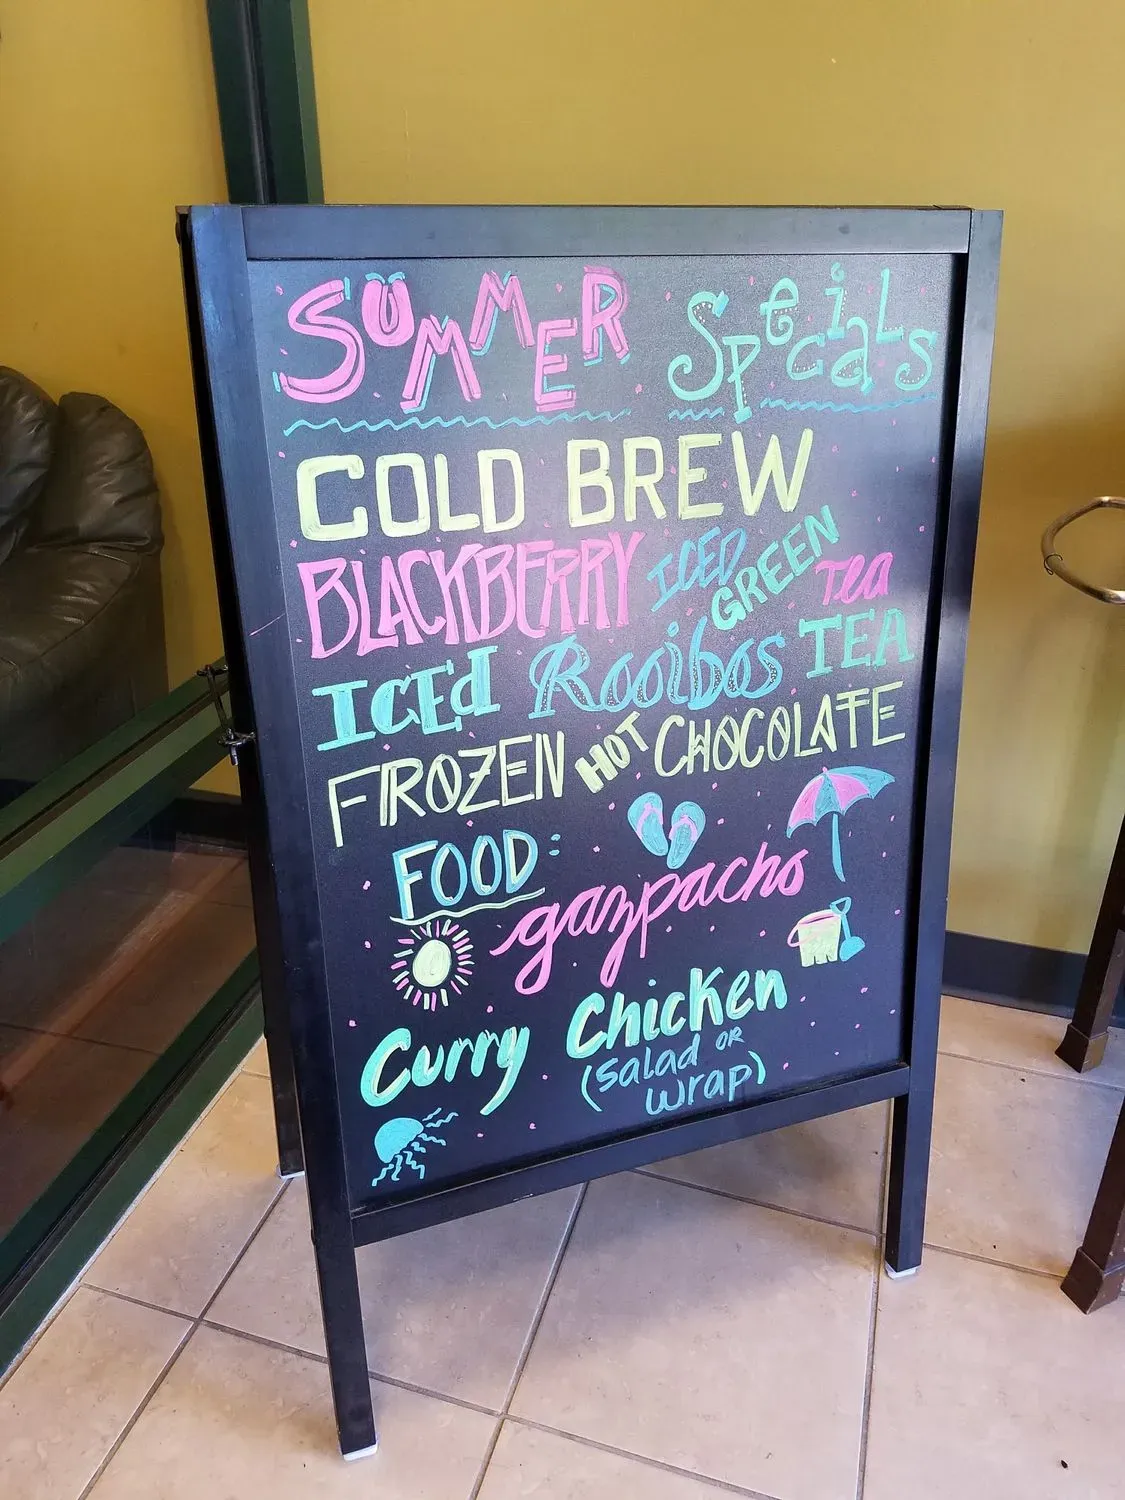 SUMMER SpeciaLs
COLD BREW
BLACKBERRY ICED GREEN Tea
ICEd Rooibos TEA
FROZEN HOT CHOCOLATE
FOOD:
gazpacho
Curry Chicken
(Salad OR
wrap)